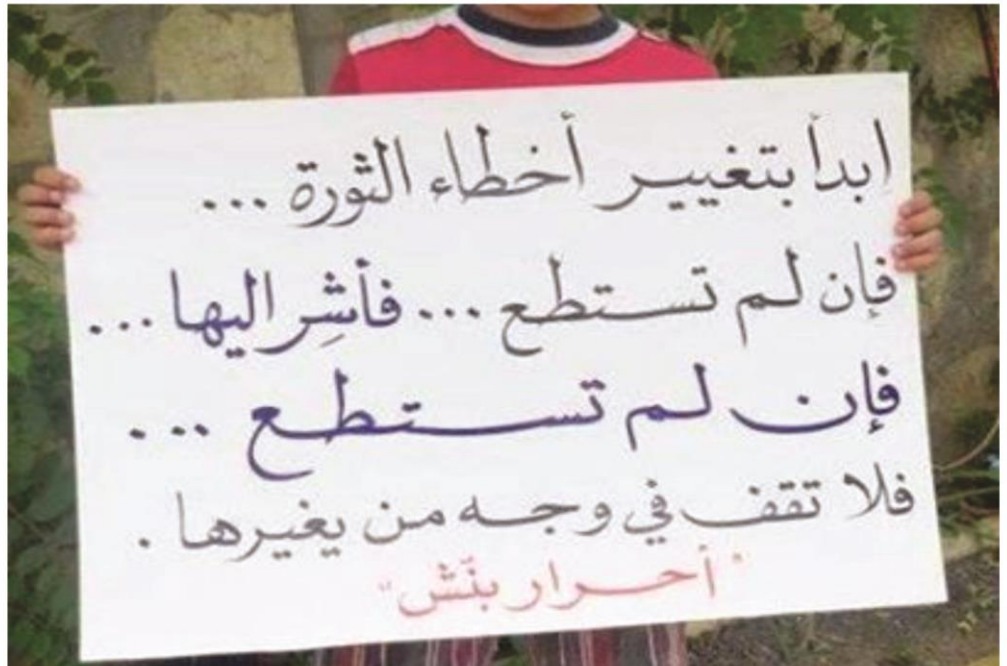 ابدأ بتغيير أخطاء الثورة ...
فإن لم تستطع ... فأشِر اليها ...
فإن لم تستطع ...
فلا تقف في وجه من يغيرها .
"أحرار بنّش"